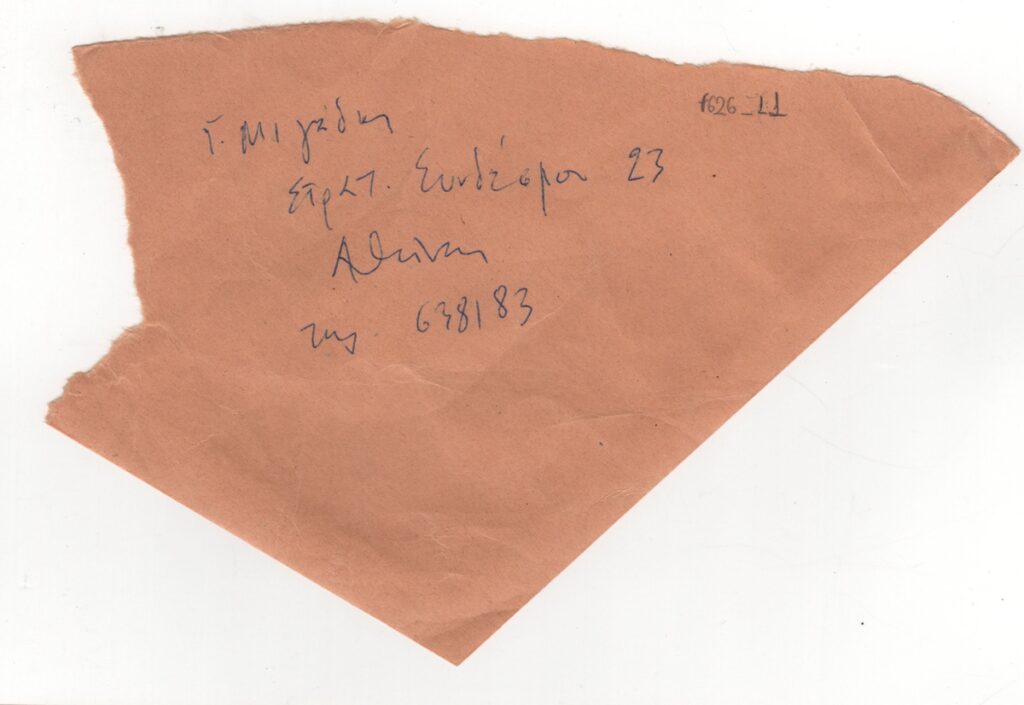 1626_11
Γ. Μιγάδης
Στρατ. Συνδέσμου 23
Αθήνας
τηλ. 638183